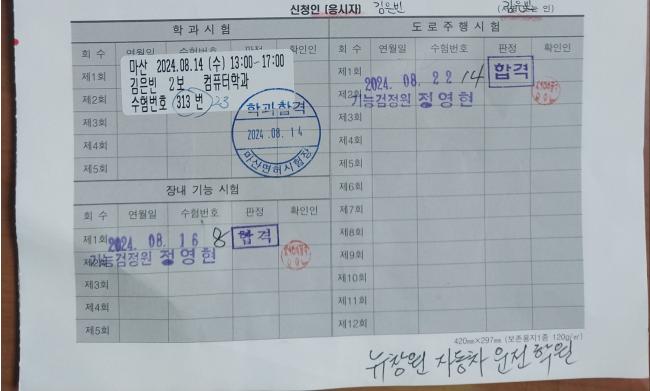 신청인 (응시자) 김은빈
학 과 시 험
회 수 연월일 수험번호 판정 확인인
마산 2024.08.14 (수) 13:00~17:00
김은빈 2보 컴퓨터학과
수험번호 313 번 23
학과합격
2024.08.14
마산면허시험장
제1회
제2회
제3회
제4회
제5회
장내 기능 시험
회 수 연월일 수험번호 판정 확인인
제1회 2024. 08. 16 8 합격
기능검정원 정영현
제3회
제4회
제5회
도 로 주 행 시 험
회 수 연월일 수험번호 판정 확인인
제1회 2024. 08. 22 14 합격
제2회
기능검정원 정영현
제3회
제4회
제5회
제6회
제7회
제8회
제9회
제10회
제11회
제12회
420㎜×297㎜ (보존용지1종 120g/㎡)
뉴창원 자동차 운전학원